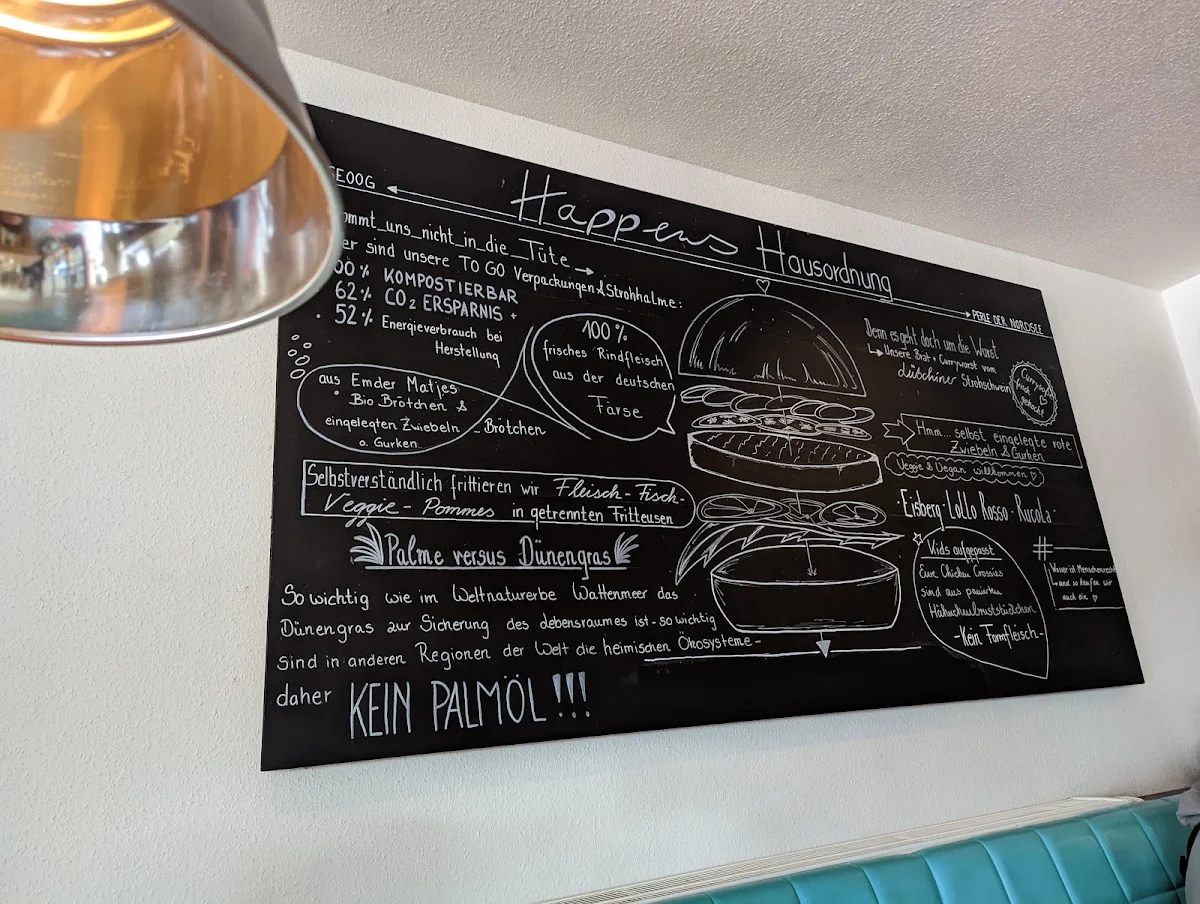 EOOG
Happens Hausordnung
PERLE DER NORDSEE
ommt_uns_nicht_in_die_Tüte
er sind unsere TO GO Verpackungen & Strohhalme:
00% KOMPOSTIERBAR
62% CO2 ERSPARNIS +
• 52% Energieverbrauch bei
Herstellung
100%
frisches Rindfleisch
aus der deutschen
Färse
aus Emder Matjes
• Bio Brötchen &
eingelegten Zwiebeln
o. Gurken
- Brötchen
Selbstverständlich frittieren wir Fleisch-Fisch-
Veggie-Pommes in getrennten Fritteusen
Palme versus Dünengras
So wichtig wie im Weltnaturerbe Wattenmeer das
Dünengras zur Sicherung des Lebensraumes ist - so wichtig
sind in anderen Regionen der Welt die heimischen Ökosysteme-
daher KEIN PALMÖL!!!
Denn es geht doch um die Wurst
Unsere Brat + Currywurst vom
Strohschwein
Currysoße
frisch
gekocht!
Hmm... selbst eingelegte rote
Zwiebeln & Gurken
Veggie & Vegan willkommen
• Eisberg • Lollo Rosso • Rucola •
Kids aufgepasst
Eure Chicken Crossies
sind aus panierten
Hähnchenbruststückchen
-Kein Formfleisch-
#
Wasser ist Menschenrecht
- und so kaufen wir
auch ein